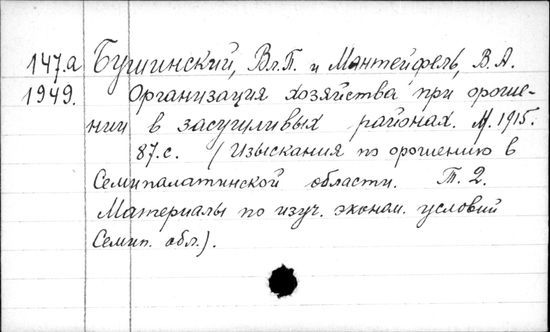 147.а Бушинский, Вл.П. и Мантейфель, В.А.
1949. Организация хозяйства при ороше-
нии в засушливых районах. М. 1915.
87.с. (Изыскания по орошению в
Семипалатинской области. Т. 2.
Материалы по изуч. эконом. условий
Семип. обл.).